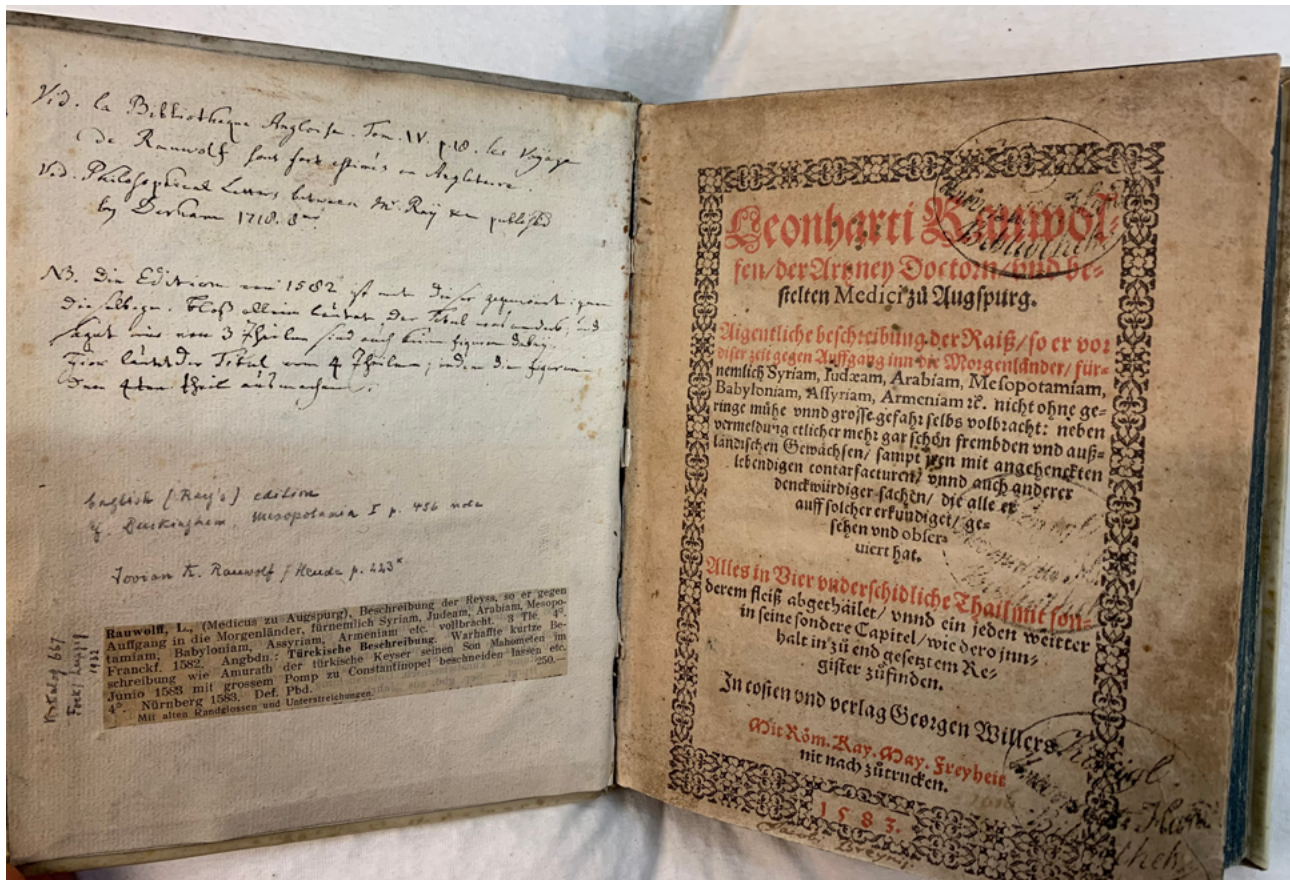 Vid. la Bibliotheque Angloise. Tom. IV. p. 18. les Voyage
de Rauwolf sont fort estimés en Angleterre.
Vid. Philosophical Letters between Mr. Ray published
by Derham 1718. 8
NB. die Edition von 1582 ist
die selbige. bloß allein lautet der Titul anders, und
saget nur von 3 Theilen sind auch keine figuren dabey.
Hier lautet der Titul von 4 Theilen; indem die figuren
den 4ten theil ausmachen.
English (Ray's) edition
cf. Buckingham, Mesopotamia I p. 456 note
Rauwolf / p. 223
Katalog 667
1932
Rauwolff, L., (Medicus zu Augspurg), Beschreibung der Reyss, so er gegen
Auffgang in die Morgenländer, fürnemlich Syriam, Judeam, Arabiam, Mesopo-
tamiam, Babyloniam, Assyriam, Armeniam etc. vollbracht. 3 Tle. 4°.
Franckf. 1582. Angbdn.: Türckische Beschreibung. Warhaffte kurtze Be-
schreibung wie Amurath der türkische Keyser seinen Son Mahometen im
Junio 1583 mit grossem Pomp zu Constantinopel beschneiden lassen etc.
4°. Nürnberg 1583. Def. Pbd. 250.—
Mit alten Randglossen und Unterstreichungen.
Leonharti Rauwol-
fen/ der Artzney Doctorn/ vnd be-
stelten Medici zů Augspurg.
Aigentliche beschreibung der Raiß/ so er vor
diser zeit gegen Auffgang inn die Morgenländer/ für-
nemlich Syriam, Iudæam, Arabiam, Mesopotamiam,
Babyloniam, Assyriam, Armeniam ꝛc. nicht ohne ge-
ringe mühe vnnd grosse gefahr selbs volbracht: neben
vermeldung etlicher mehr gar schön frembden vnd auß-
ländischen Gewächsen/ sampt jren mit angehenckten
lebendigen contarfacturen/ vnnd auch anderer
denckwürdiger sachen/ die alle er
auff solcher erkundiget/ ge-
sehen vnd obser-
uiert hat.
Alles in Vier vnderschidliche Thail mit son-
derem fleiß abgethäilet/ vnnd ein jeden weitter
in seine sondere Capitel/ wie dero jnn-
halt in zů end gesetztem Re-
gister zůfinden.
In costen vnd verlag Georgen Willers.
Mit Röm. Kay. May. Freyheit
nit nach zůtrucken.
1583.
Bibliothek
Königl.